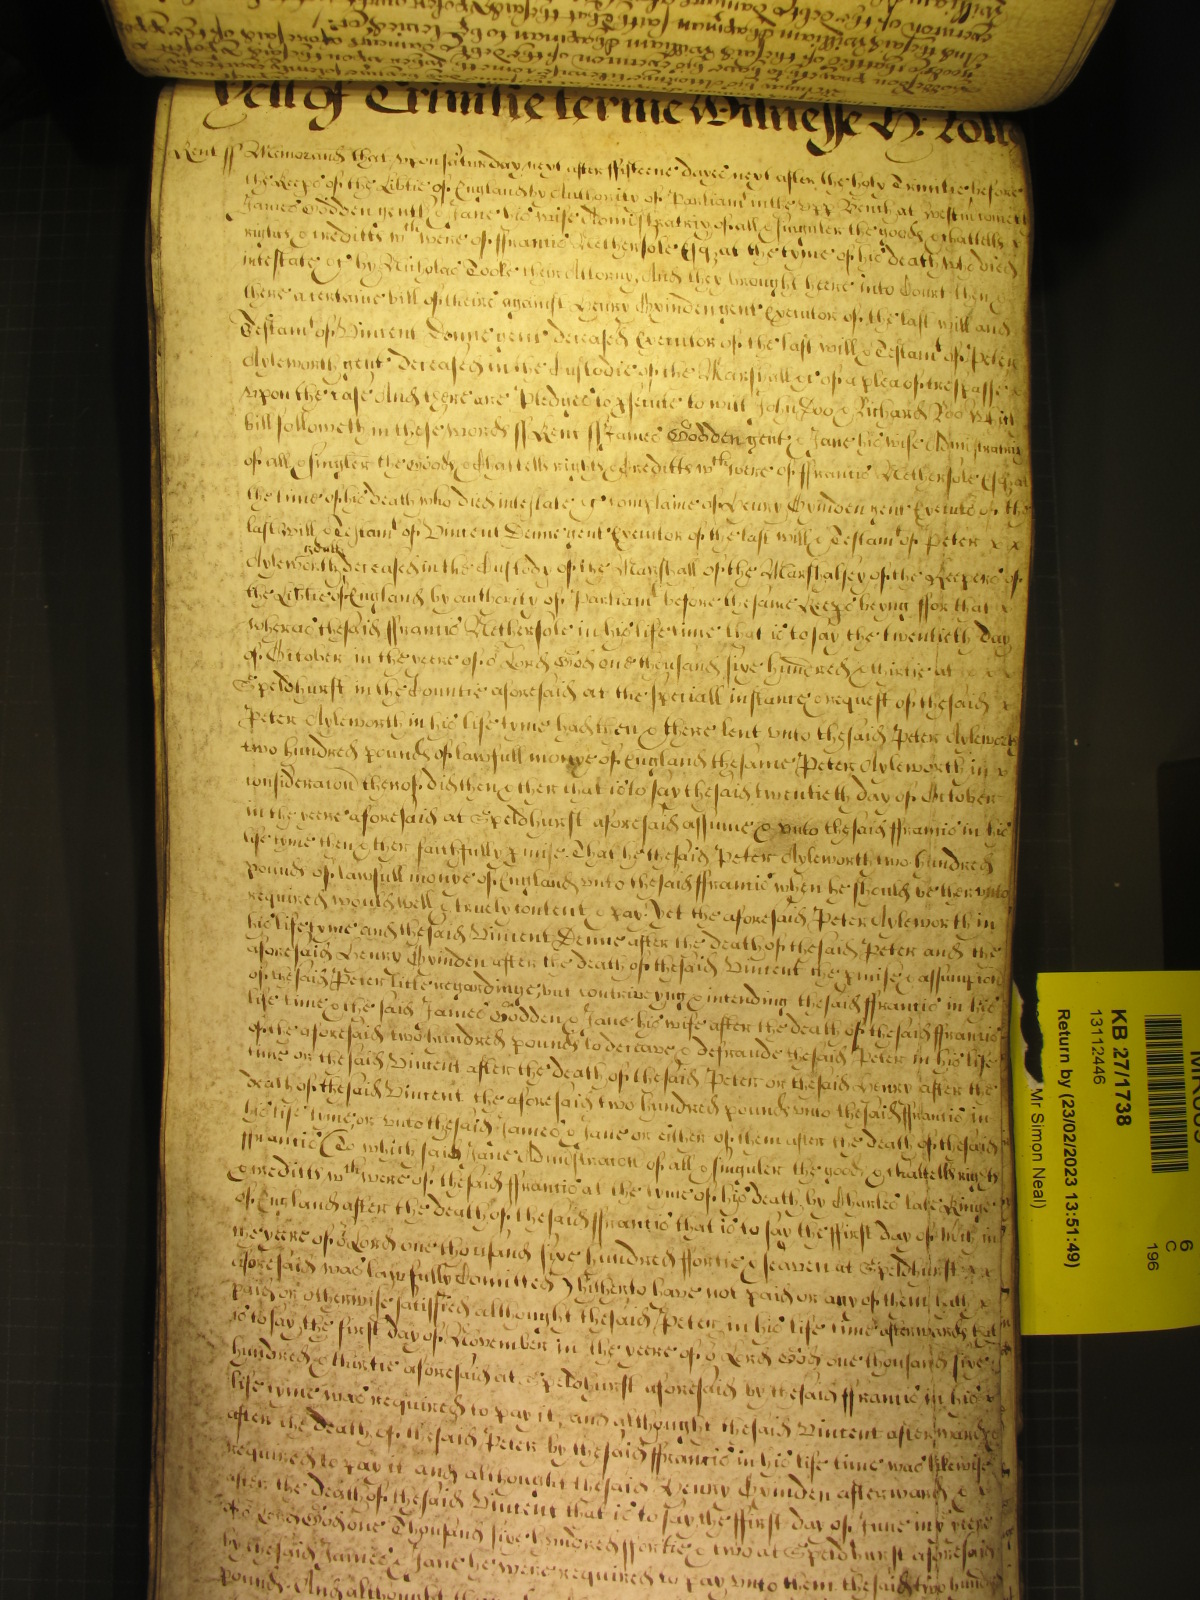 Yett of Trinitie terme Witnesse H: Rolle
Kent ss Memorand that upon saturday next after ffifteene dayes next after the holy Trinitie before
the Keeps of the Libtie of England by Authority of Parliamt in the upp Bench at Westm cometh
James Godden gent & Jane his wife Administratrix of all & singuler the goods & chattells x
rights & creditts wch were of ffrancis Nethersole Esq at the tyme of his death who died
intestate &c by Nicholas Tooke their Attorny, And they brought heere into Court then &
there a certaine bill of theirs against Henry Gvinden gent Executor of the last will and
Testamt of Vincent Denne gent deceased Executor of the last will & Testamt of Peter
Ayleworth gent deceased in the Custodie of the Marshall &c of a plea of trespasse x
upon the case And there are Pledges to psecute to witt John Doo & Richard Roo wch
bill followeth in these words ss Kent ss James Godden gent & Jane his wife Administratrix
of all & singler the Goods & Chattells rights & Creditts wch were of ffrancis Nethersole Esq at
the time of his death who died intestate &c complaine of Henry Gvinden gent Executor of the
last will & Testamt of Vincent Denne gent Executor of the last will & Testamt of Peter x x
Ayleworth deceased in the Custody of the Marshall of the Marshalsey of the Keepers of
the Libtie of England by authority of Parliamt before the same Keeps beyng ffor that x
wheras the said ffrancis Nethersole in his life time that is to say the twentieth day
of October in the yeere of or Lord God one thousand six hundred & thirtie at x x
Speldhurst in the Countie aforesaid at the speciall instance & request of the said x
Peter Ayleworth in his life tyme had then & there lent unto the said Peter Ayleworth
two hundred pounds of lawfull monye of England the same Peter Ayleworth in x
consideracon therof did then & ther that is to say the said twentieth day of October
in the yeere aforesaid at Speldhurst aforesaid assume & unto the said ffrancis in his
life tyme then & ther faithfully pmise That he the said Peter Ayleworth two hundred
pounds of lawfull monye of England unto the said ffrancis when he should be therunto
required would well & truely content & pay. Yet the aforesaid Peter Ayleworth in
his life tyme and the said Vincent Denne after the death of the said Peter and the
aforesaid Henry Gvinden after the death of the said Vincent the pmise & assumption
of the said Peter little regardinge, but contriveyng & intending the said ffrancis in his
life time & the said James Godden & Jane his wife after the death of the said ffrancis
of the aforesaid two hundred pounds to deceave & defraude the said Peter in his life
time or the said Vincent after the death of the said Peter or the said Henry after the
death of the said Vincent the aforesaid two hundred pounds unto the said ffrancis in
his life tyme, or unto the said James & Jane or either of them after the death of the said
ffrancis (To which said Jane Administracon of all & singuler the goods & chattells rights
& creditts wch were of the said ffrancis at the tyme of his death by Charles late Kinge
of England after the death of the said ffrancis that is to say the ffirst day of July in
the yeere of or Lord one thousand six hundred ffortie & seaven at Speldhurst x x
aforesaid was lawfully Comitted) hitherto have not paid or any of them hath x
paid or otherwise satisfied althought the said Peter in his life time afterwards that
is to say the first day of November in the yeere of or Lord God one thousand six
hundred & thirtie aforesaid at Speldhurst aforesaid by the said ffrancis in his x
life tyme was required to pay it, and althought the said Vincent afterwards
after the death of the said Peter by the said ffrancis in his life time was likewise
required to pay it and althought the said Henry Gvinden afterward x x
after the death of the said Vincent that is to say the ffirst day of June in ye yeere
of or Lord God one Thousand six hundred ffortie & two at Speldhurst aforesaid
by the said James & Jane he were required to pay unto them the said two hundred
pounds. And althought
KB 27/1738
13112446
Return by (23/02/2023 13:51:49)
Mr Simon Neal)
6
C
196